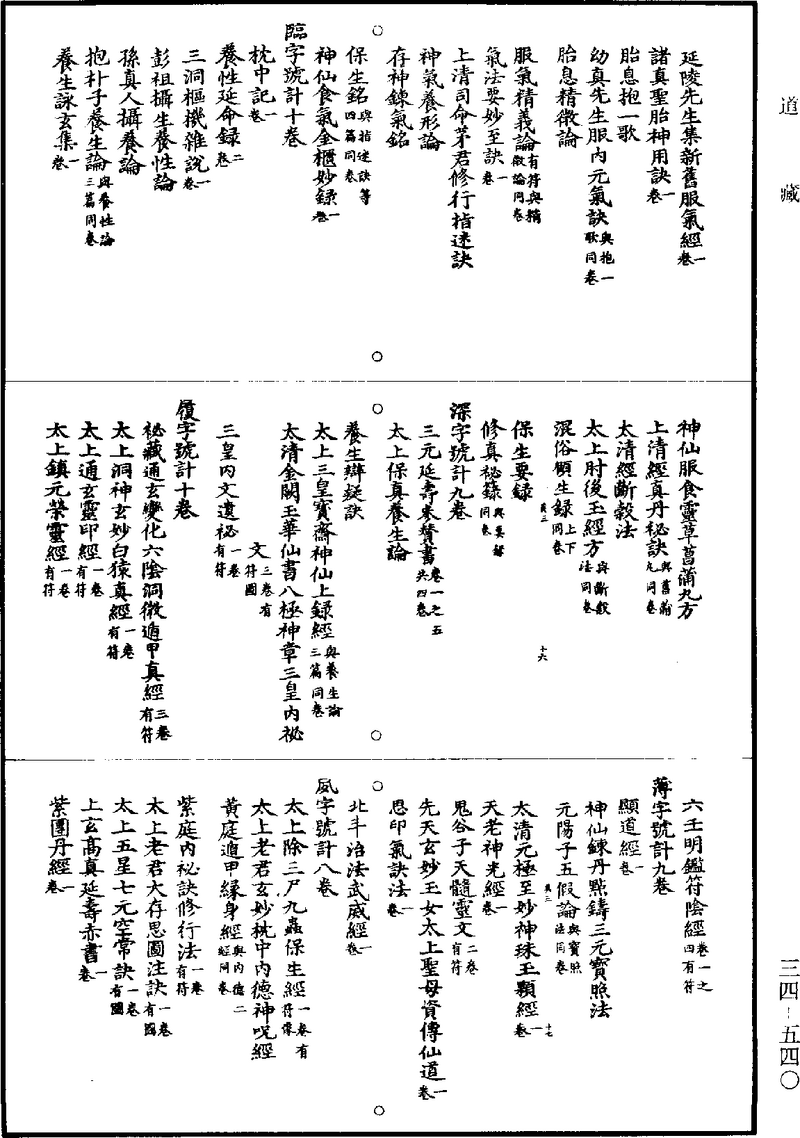 道藏
延陵先生集新舊服氣經一卷
諸真聖胎神用訣一卷
胎息抱一歌
幼真先生服內元氣訣與抱一歌同卷
胎息精微論
服氣精義論有符與精微論同卷
氣法要妙至訣一卷
上清司命茅君修行指迷訣
神氣養形論
存神鍊氣銘
保生銘與指迷訣等四篇同卷
神仙食氣金櫃妙錄一卷
臨字號計十卷
枕中記一卷
養性延命錄二卷
三洞樞機雜說一卷
彭祖攝生養性論
孫真人攝養論
抱朴子養生論與養性論三篇同卷
養生詠玄集一卷
神仙服食靈草菖蒲丸方
上清經真丹秘訣與菖蒲丸同卷
太清經斷穀法
太上肘後玉經方與斷穀法同卷
混俗頤生錄上下同卷
保生要錄
修真秘籙與要錄同卷
深字號計九卷
三元延壽參贊書卷一之五共四卷
太上保真養生論
十六
養生辯疑訣
太上三皇寶齋神仙上錄經與養生論三篇同卷
太清金闕玉華仙書八極神章三皇內祕
文三卷有符圖
三皇內文遺祕一卷有符
履字號計十卷
祕藏通玄變化六陰洞微遁甲真經三卷有符
太上洞神玄妙白猿真經一卷有符
太上通玄靈印經一卷有符
太上鎮元榮靈經一卷有符
六壬明鑑符陰經卷一之四有符
薄字號計九卷
顯道經一卷
神仙鍊丹點鑄三元寶照法
元陽子五假論與寶照法同卷
太清元極至妙神珠玉顆經一卷
十七
天老神光經一卷
鬼谷子天髓靈文二卷有符
先天玄妙玉女太上聖母資傳仙道一卷
思印氣訣法一卷
北斗治法武威經一卷
夙字號計八卷
太上除三尸九蟲保生經一卷有符像
太上老君玄妙枕中內德神呪經
黃庭遁甲緣身經與內德二經同卷
紫庭內祕訣修行法一卷有符
太上老君大存思圖注訣一卷有圖
太上五星七元空常訣一卷有圖
上玄高真延壽赤書一卷
紫團丹經一卷
三四－五四〇